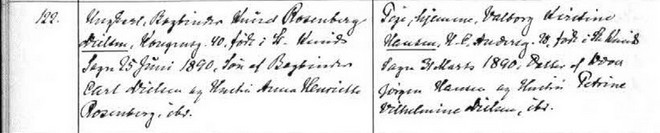 122. Ungkarl, Bogbinder Knud Rosenberg
Nielsen, Kongensg. 40, født i St. Knuds
Sogn 25 Juni 1890, Søn af Bogbinder
Carl Nielsen og Hustru Anna Henriette
Rosenberg, ibd.
Pige, hjemme, Valborg Kirstine
Hansen, H. C. Andersg. født i St. Knuds
Sogn 31 Marts 1890, Datter af
Jørgen Hansen og Hustru Petrine
Vilhelmine Nielsen, ibd.